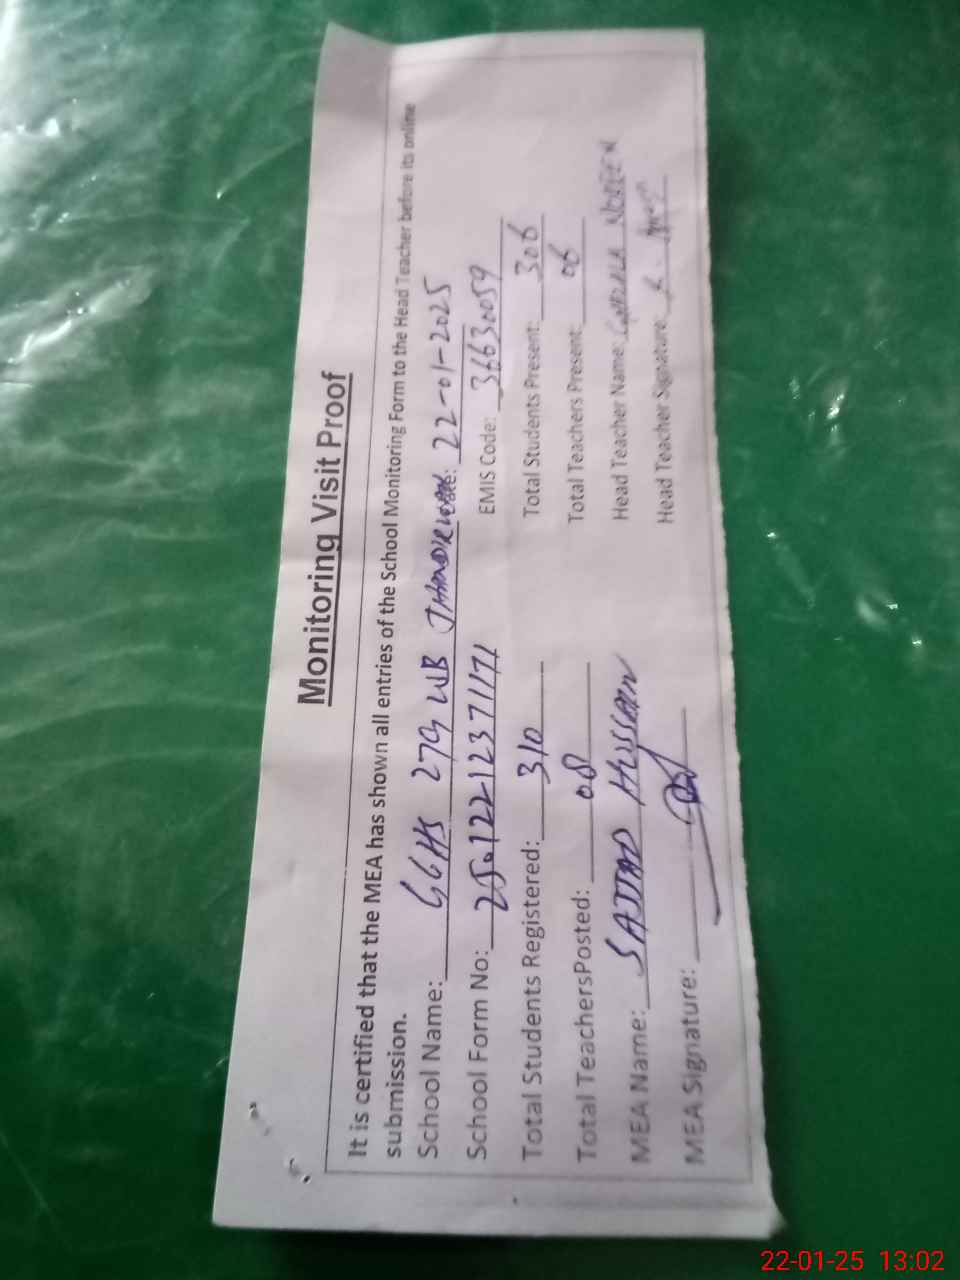 Monitoring Visit Proof
It is certified that the MEA has shown all entries of the School Monitoring Form to the Head Teacher before its online
submission.
School Name: GGHS 279 WB Date: 22-01-2025
School Form No: EMIS Code: 36630059
Total Students Registered: 310 Total Students Present: 306
Total TeachersPosted: 08 Total Teachers Present: 06
MEA Name: SAJJAD HUSSAIN Head Teacher Name: NOREEN
MEA Signature: Head Teacher Signature:
22-01-25 13:02